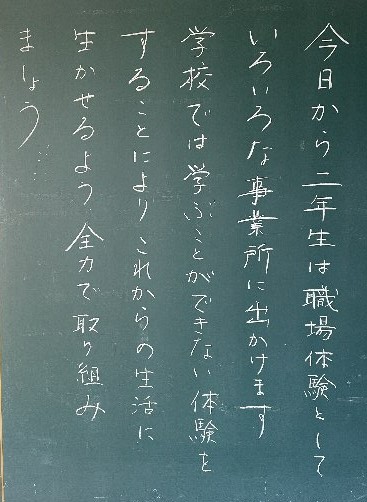 今日から二年生は職場体験として
いろいろな事業所に出かけます
学校では学ぶことができない体験を
することにより これからの生活に
生かせるよう 全力で取り組み
ましょう